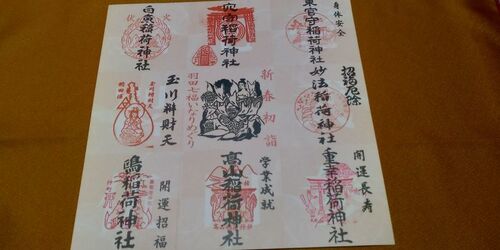 身体安全
東官守稲荷神社
穴守稲荷神社
白魚稲荷神社
火
伏
招福厄除
妙法稲荷神社
新春初詣
羽田七福いなりめぐり
玉川弁財天
開運長寿
重幸稲荷神社
学業成就
高山稲荷神社
開運招福
鴎稲荷神社